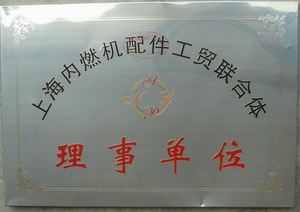 上海内燃机配件工贸联合体
A
P
理事单位